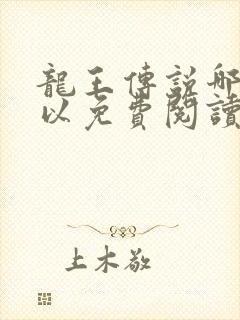 龍王傳說哪
以免費閱讀
上木敬